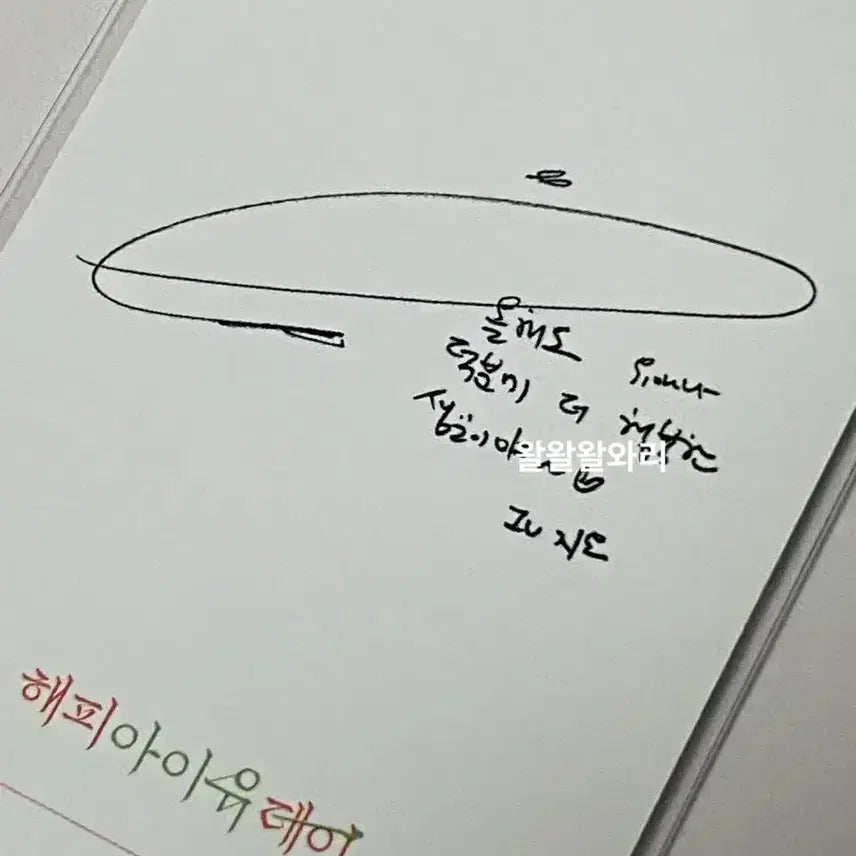 올해도 유애나
덕분에 더 행복한
생일이야~
IU 지은
왈왈왈와리
해피아이유데이